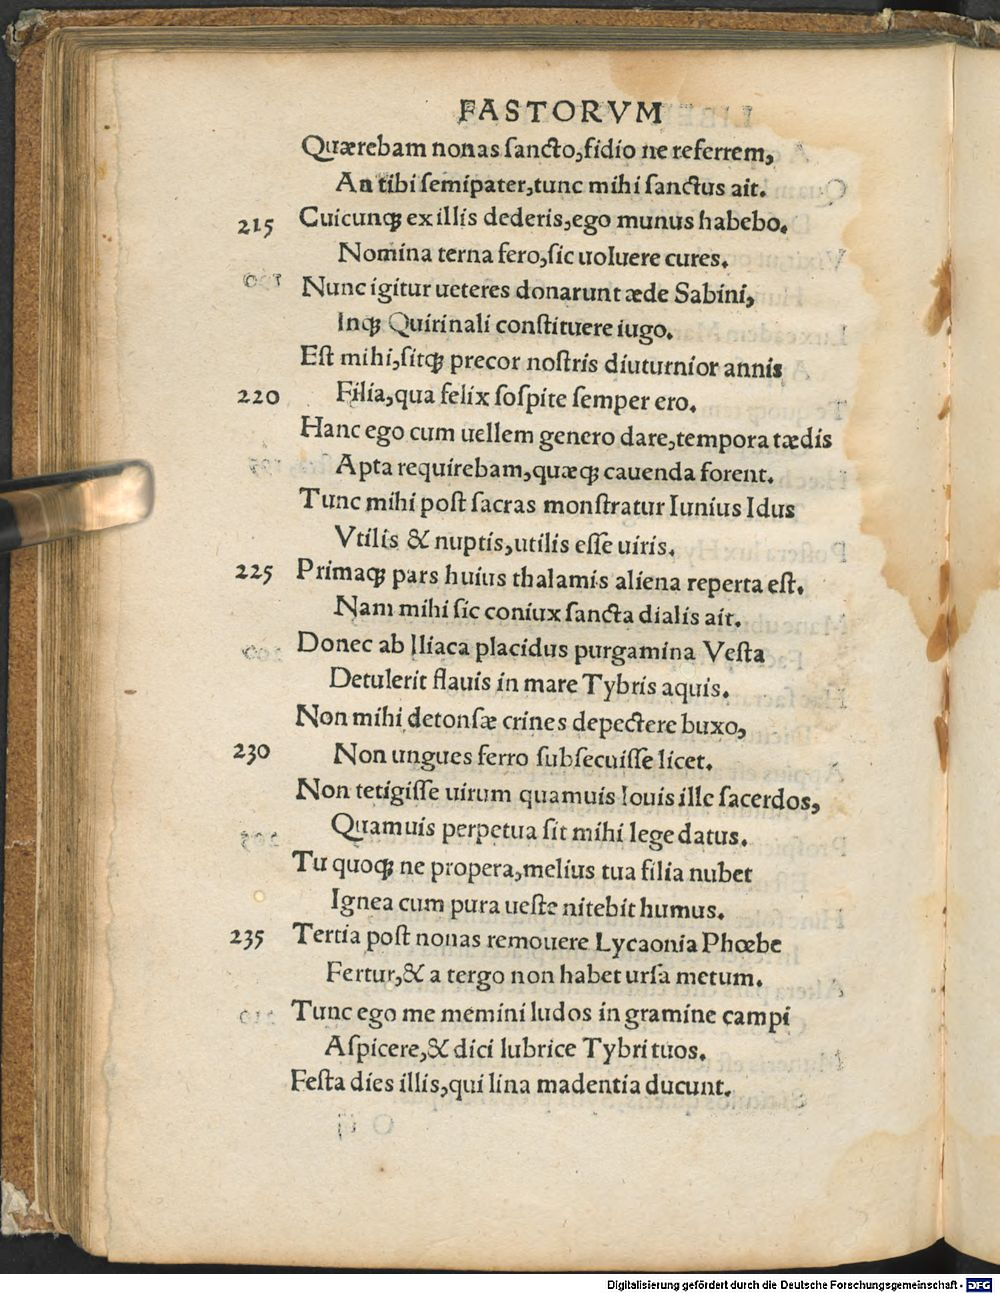 FASTORVM
Quærebam nonas sancto,fidio ne referrem,
An tibi semipater,tunc mihi sanctus ait.
215 Cuicunqꝫ ex illis dederis,ego munus habebo.
Nomina terna fero,sic uoluere cures.
Nunc igitur ueteres donarunt æde Sabini,
Inqꝫ Quirinali constituere iugo.
Est mihi,sitqꝫ precor nostris diuturnior annis
220 Filia,qua felix sospite semper ero.
Hanc ego cum uellem genero dare,tempora tædis
Apta requirebam,quæqꝫ cauenda forent.
Tunc mihi post sacras monstratur Iunius Idus
Vtilis & nuptis,utilis esse uiris.
225 Primaqꝫ pars huius thalamis aliena reperta est.
Nam mihi sic coniux sancta dialis ait.
Donec ab Iliaca placidus purgamina Vesta
Detulerit flauis in mare Tybris aquis.
Non mihi detonsæ crines depectere buxo,
230 Non ungues ferro subsecuisse licet.
Non tetigisse uirum quamuis Iouis ille sacerdos,
Quamuis perpetua sit mihi lege datus.
Tu quoqꝫ ne propera,melius tua filia nubet
Ignea cum pura ueste nitebit humus.
235 Tertia post nonas remouere Lycaonia Phœbe
Fertur,& a tergo non habet ursa metum.
Tunc ego me memini ludos in gramine campi
Aspicere,& dici lubrice Tybri tuos.
Festa dies illis,qui lina madentia ducunt.
Digitalisierung gefördert durch die Deutsche Forschungsgemeinschaft - DFG